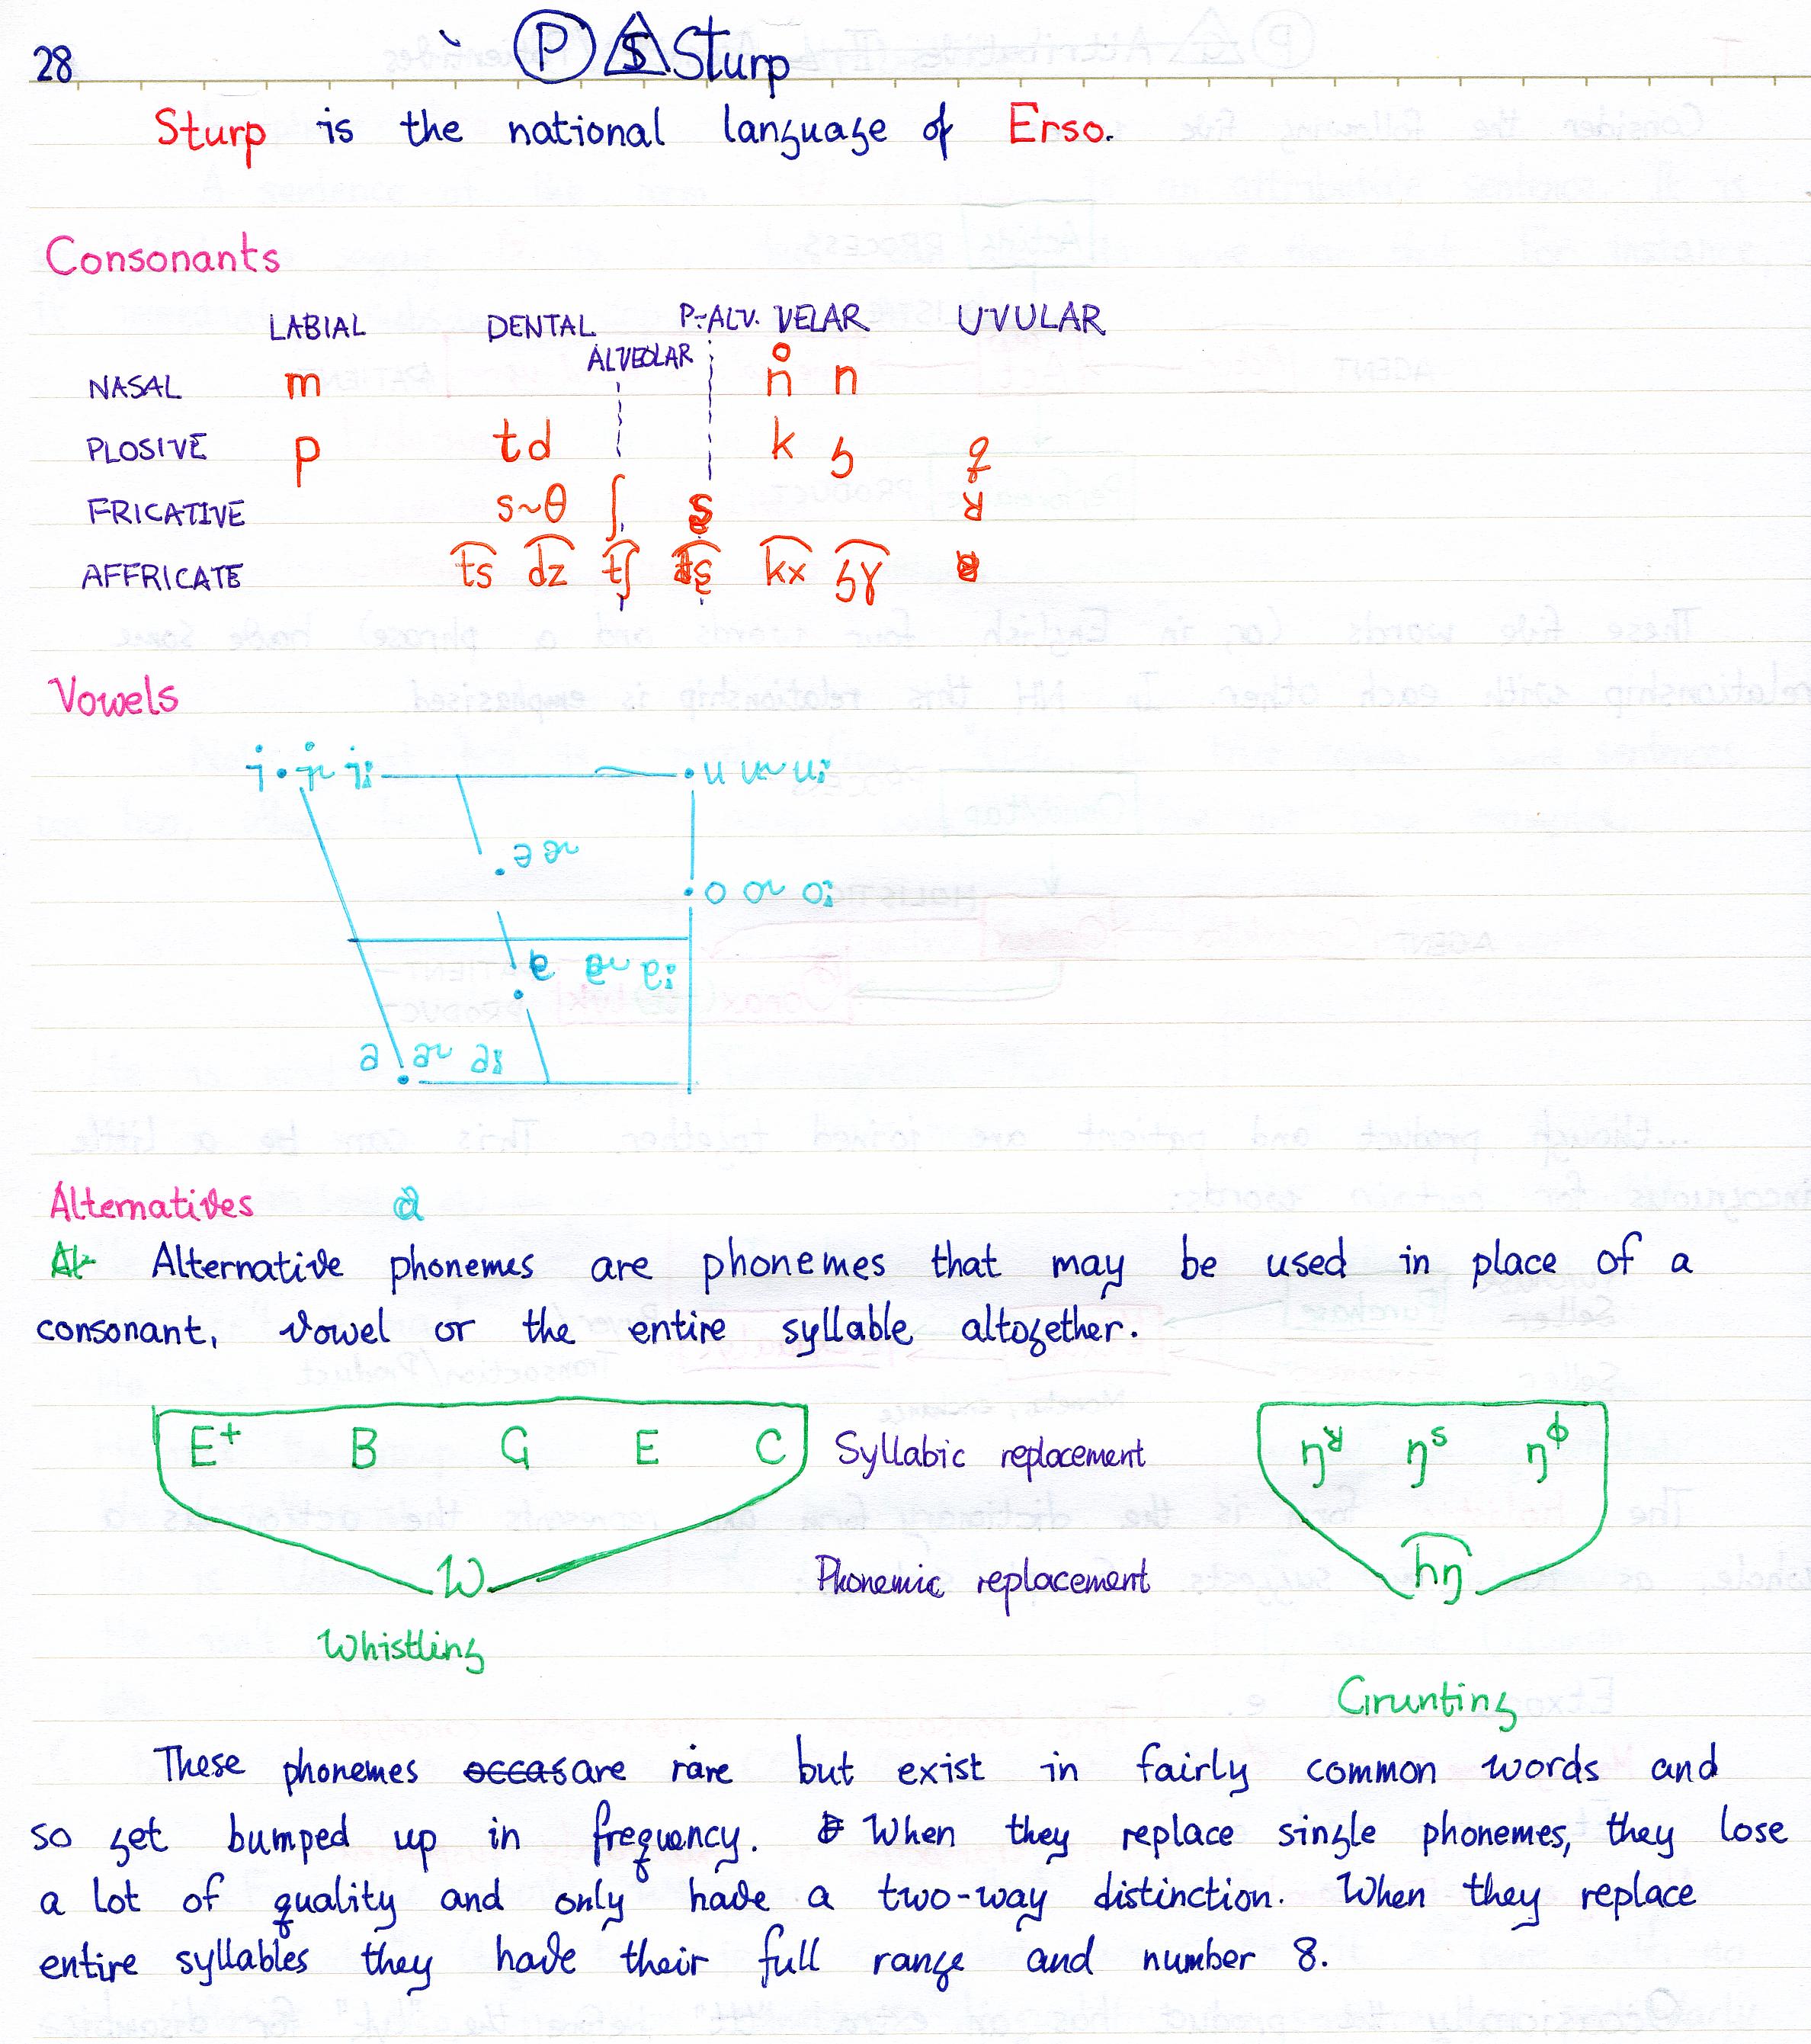 28 P $ Sturp
Sturp is the national language of Erso.
Consonants
LABIAL DENTAL ALVEOLAR P-ALV. VELAR UVULAR
NASAL m n̊ n
PLOSIVE p t d k g q
FRICATIVE s~θ ʃ ʁ
AFFRICATE t͡s d͡z t͡ʃ k͡x g͡ɣ
Vowels
u
o
Alternatives
Alternative phonemes are phonemes that may be used in place of a
consonant, vowel or the entire syllable altogether.
E+ B G E C Syllabic replacement ŋʁ ŋs ŋɸ
W Phonemic replacement h͡ŋ
Whistling
Grunting
These phonemes occas are rare but exist in fairly common words and
so get bumped up in frequency. When they replace single phonemes, they lose
a lot of quality and only have a two-way distinction. When they replace
entire syllables they have their full range and number 8.